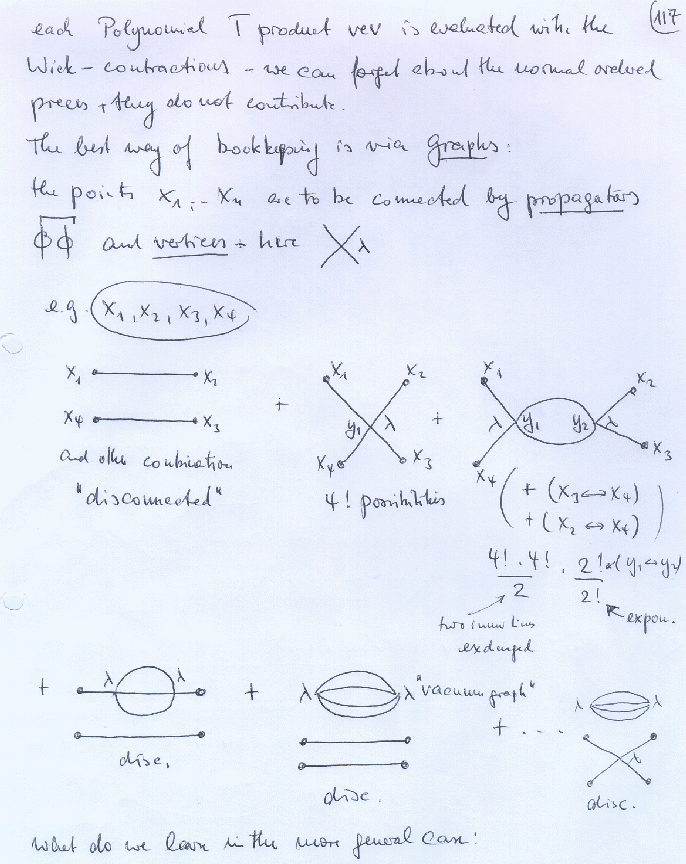 117
each Polynomial T product vev is evaluated with the
Wick - contractions - we can forget about the normal ordered
pieces, they do not contribute.
The best way of bookkeeping is via graphs:
the points x₁, .. xₙ are to be connected by propagators
ϕϕ and vertices - here λ
e.g. x₁, x₂, x₃, x₄
x₁ x₂
x₄ x₃
and other combination
"disconnected"
+
x₁ x₂
y₁ λ
x₄ x₃
4! possibilities
+
x₁ x₂
λ y₁ y₂ λ
x₄ x₃
( + (x₃ ↔ x₄)
+ (x₂ ↔ x₄) )
4! · 4! / 2 · 2! (y₁ ↔ y₂) / 2!
two inner lines
exchanged
expon.
+ λ λ
disc.
+ λ λ "vacuum graph"
disc.
+ ....
λ λ
λ
disc.
What do we learn in the more general case: